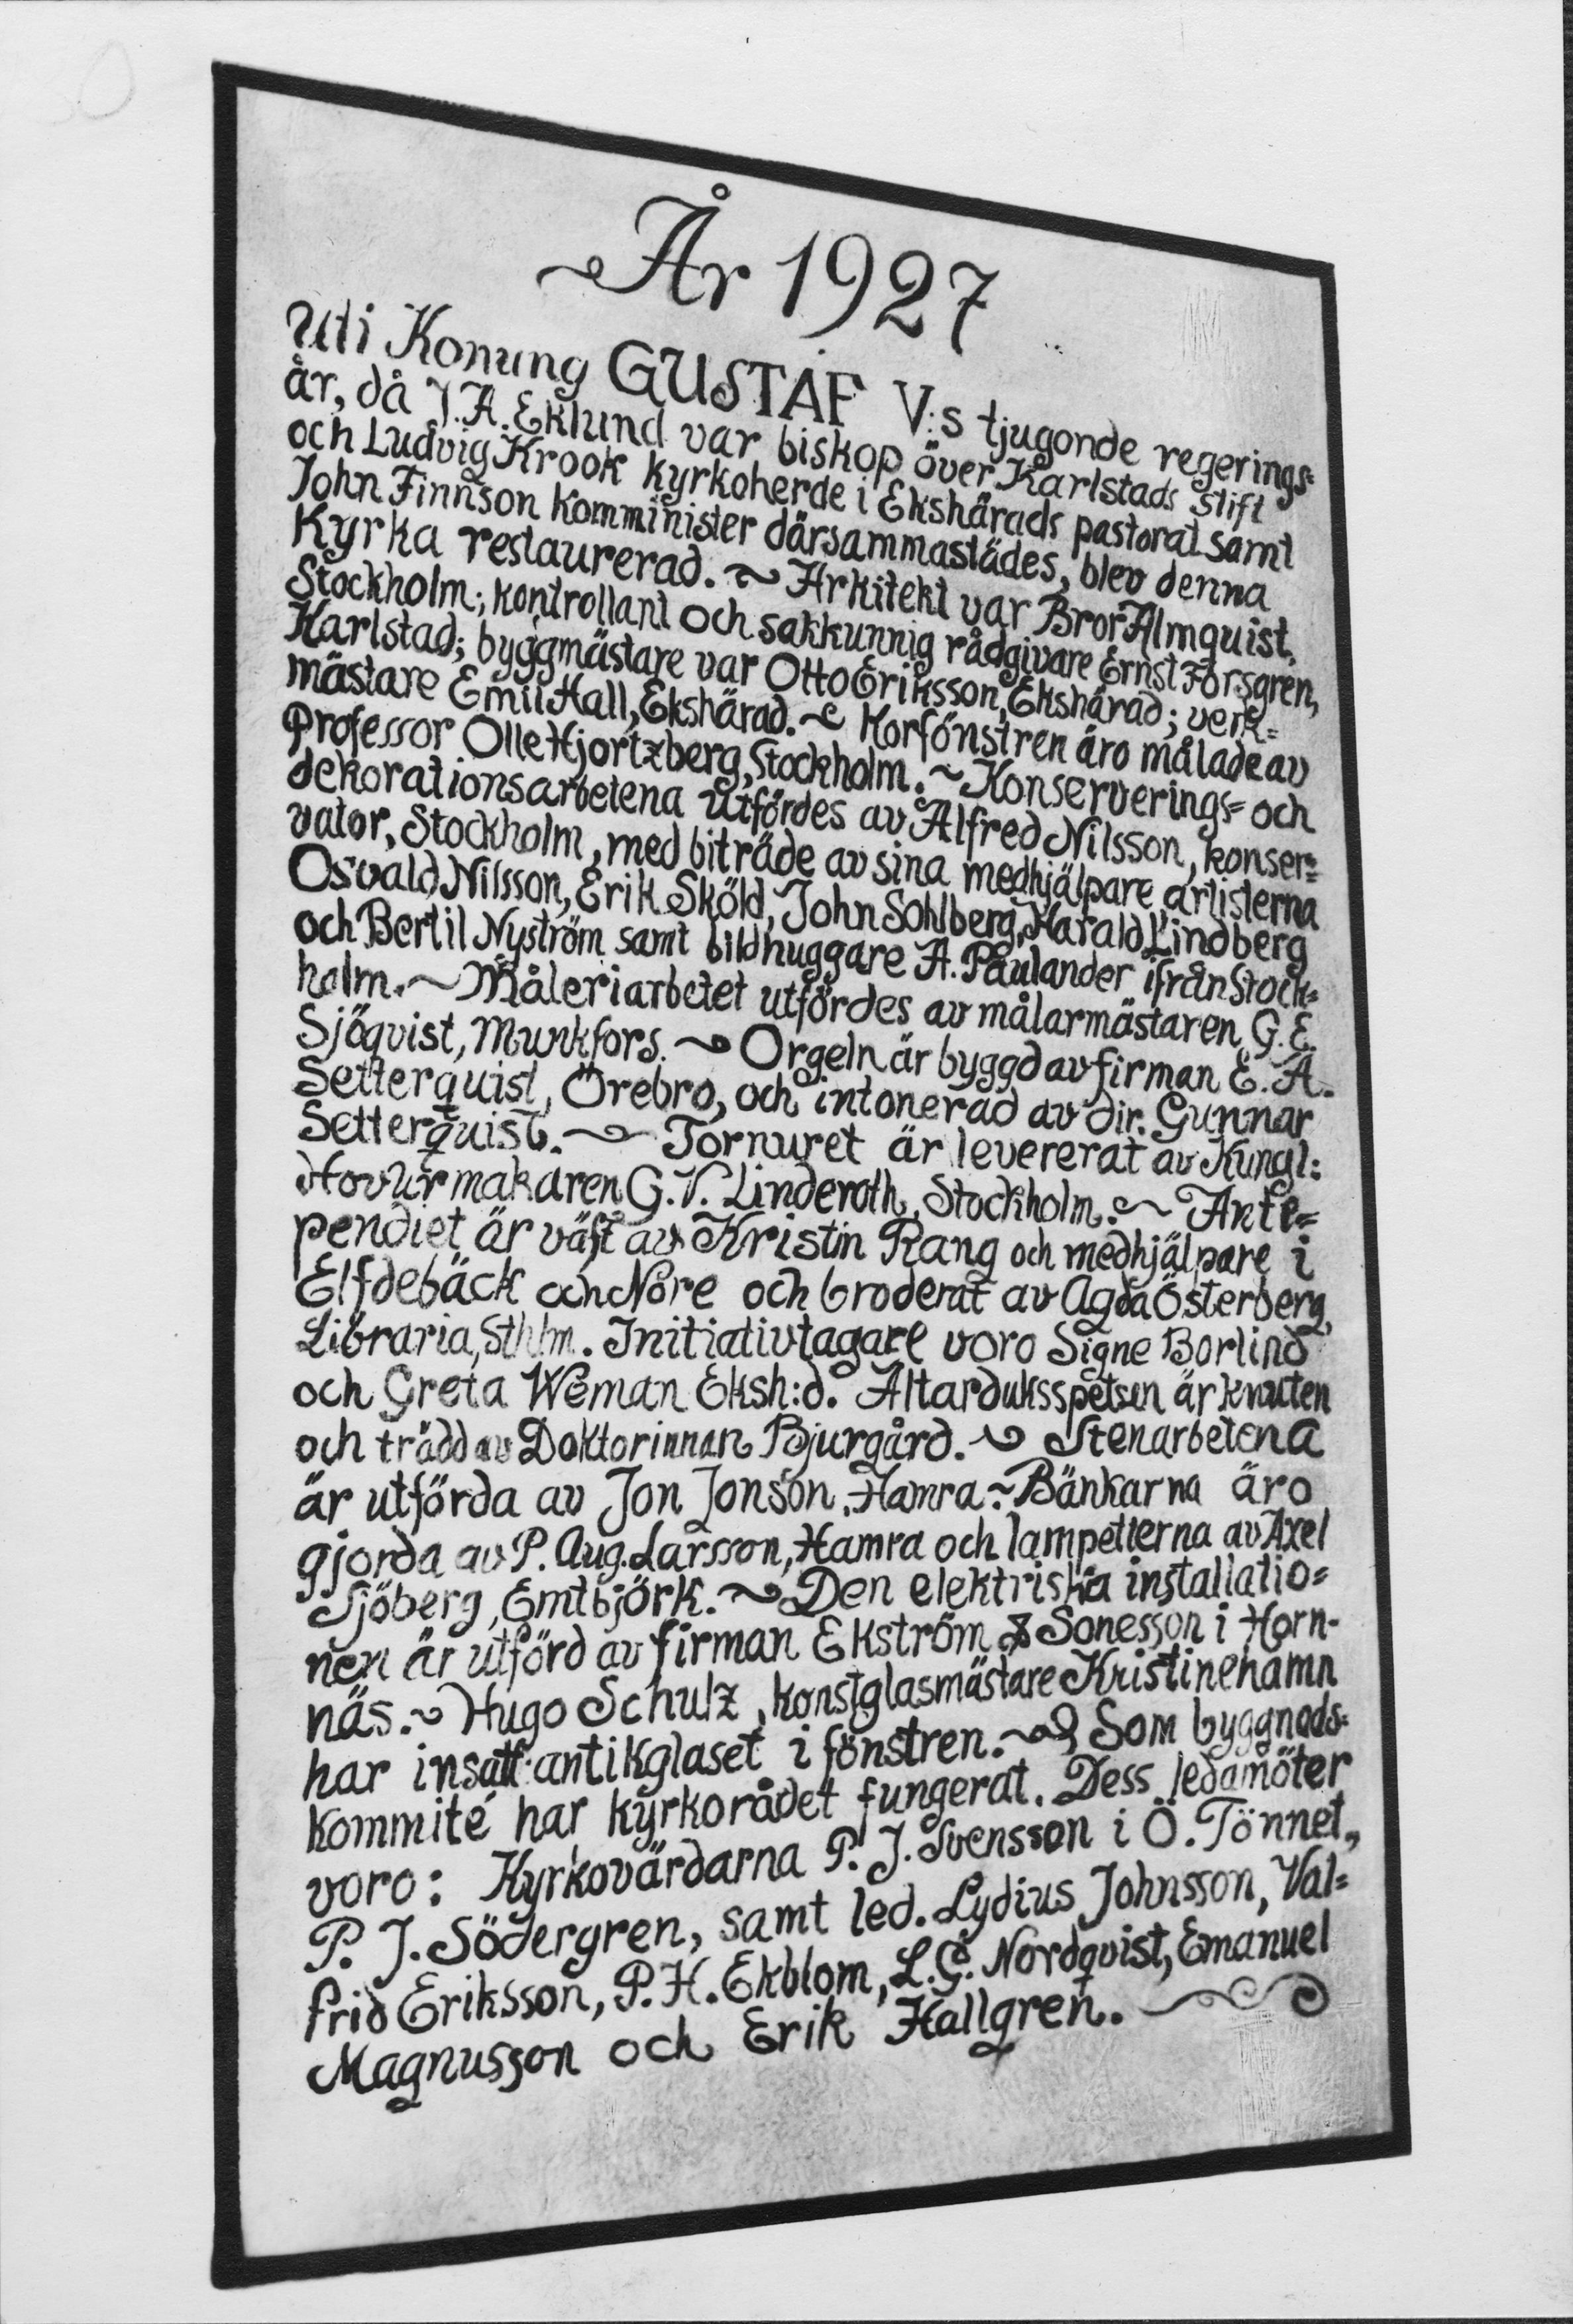 År 1927
Uti Konung GUSTAF V:s tjugonde regerings=
år, då J. A. Eklund var biskop över Karlstads Stift
och Ludvig Krook kyrkoherde i Ekshärads pastorat samt
John Finnson komminister därsammastädes, blev denna
Kyrka restaurerad. ~ Arkitekt var Bror Almquist,
Stockholm; kontrollant och sakkunnig rådgivare Ernst Forsgren,
Karlstad; byggmästare var Otto Eriksson, Ekshärad; verk=
mästare Emil Hall, Ekshärad. ~ Korfönstren äro målade av
Professor Olle Hjortzberg, Stockholm. ~ Konserverings= och
dekorationsarbetena utfördes av Alfred Nilsson, konser=
vator, Stockholm, med biträde av sina medhjälpare artisterna
Osvald Nilsson, Erik Sköld, John Sohlberg, Harald Lindberg
och Bertil Nyström samt bildhuggare A. Paulander ifrån Stock=
holm. ~ Måleriarbetet utfördes av målarmästaren G. E.
Sjöqvist, Munkfors. ~ Orgeln är byggd av firman E. A.
Setterquist, Örebro, och intonerad av dir. Gunnar
Setterquist. ~ Tornuret är levererat av Kungl:
Hovurmakaren G. V. Linderoth, Stockholm. ~ Ante=
pendiet är väft av Kristin Rang och medhjälpare i
Elfdebäck och Nore och broderat av Agda Österberg,
Libraria, Sthlm. Initiativtagare voro Signe Borlind
och Greta Weman Eksh:d. Altarduksspetsen är knuten
och trädd av Doktorinnan Bjurgård. ~ Stenarbetena
är utförda av Jon Jonson, Hamra. ~ Bänkarna äro
gjorda av P. Aug. Larsson, Hamra och lampetterna av Axel
Sjöberg, Emtbjörk. ~ Den elektriska installatio=
nen är utförd av firman Ekström & Sonesson i Horn-
näs. ~ Hugo Schulz, konstglasmästare Kristinehamn
har insatt antikglaset i fönstren. ~ Som byggnads=
kommité har kyrkorådet fungerat. Dess ledamöter
voro: Kyrkovärdarna P. J. Svensson i Ö. Tönnet,
P. J. Södergren, samt led. Lydius Johnsson, Val=
frid Eriksson, P. H. Ekblom, L. G. Nordqvist, Emanuel
Magnusson och Erik Hallgren.